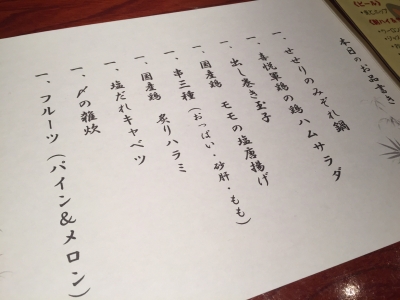 本日のお品書き
一、せせりのみぞれ鍋
一、喜悦軍鶏の鶏ハムサラダ
一、出し巻き玉子
一、国産鶏 モモの塩唐揚げ
一、串三種(おっぱい・砂肝・もも)
一、国産鶏 炙りハラミ
一、塩だれキャベツ
一、〆の雑炊
一、フルーツ(パイン&メロン)